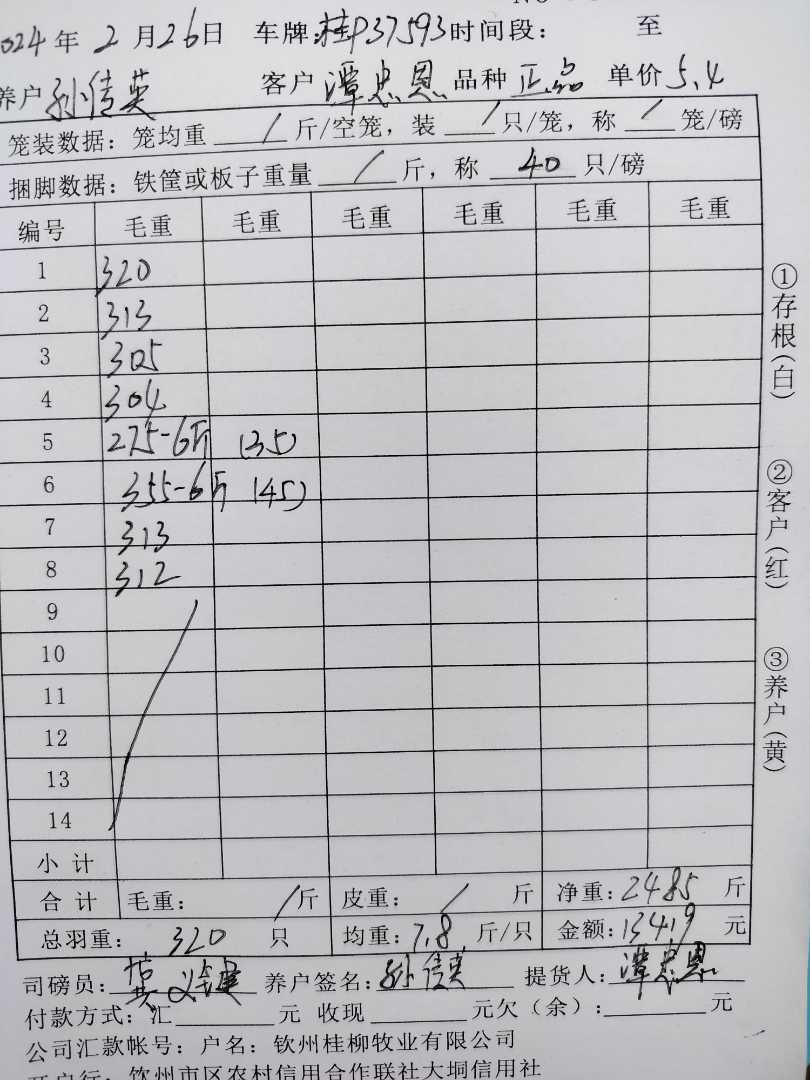 2024年 2月26日 车牌:桂P37593时间段: 至
养户 孙倩英 客户 潭忠恩 品种 正品 单价 5.4
笼装数据:笼均重 / 斤/空笼,装 / 只/笼,称 / 笼/磅
捆脚数据:铁筐或板子重量 / 斤,称 40 只/磅
编号 毛重 毛重 毛重 毛重 毛重 毛重
1 320
2 313
3 305
4 304
5 275-6斤 (35)
6 355-6斤 (45)
7 313
8 312
9
10
11
12
13
14
小 计
合 计 毛重: / 斤 皮重: / 斤 净重:2485 斤
总羽重: 320 只 均重:7.8 斤/只 金额:13419 元
司磅员: 养户签名:孙倩英 提货人:潭忠恩
付款方式:汇 元 收现 元欠(余): 元
公司汇款帐号:户名:钦州桂柳牧业有限公司
开户行:钦州市区农村信用合作联社大垌信用社
①存根(白)
②客户(红)
③养户(黄)